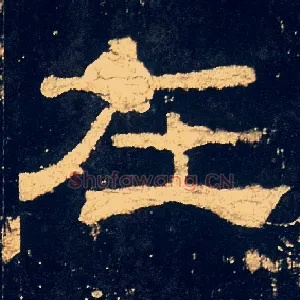 左
Shufawang.CN